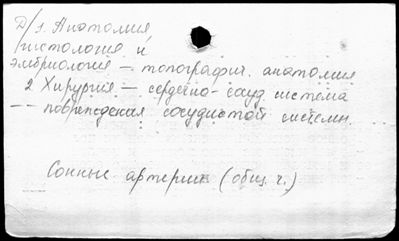 Д/1. Анатомия
гистология и
эмбриология — топографич. анатомия
2 Хирургия — сердечно-сауд система
— — повреждения сосудистой системы.
Сонные артерии (общ. ч.)